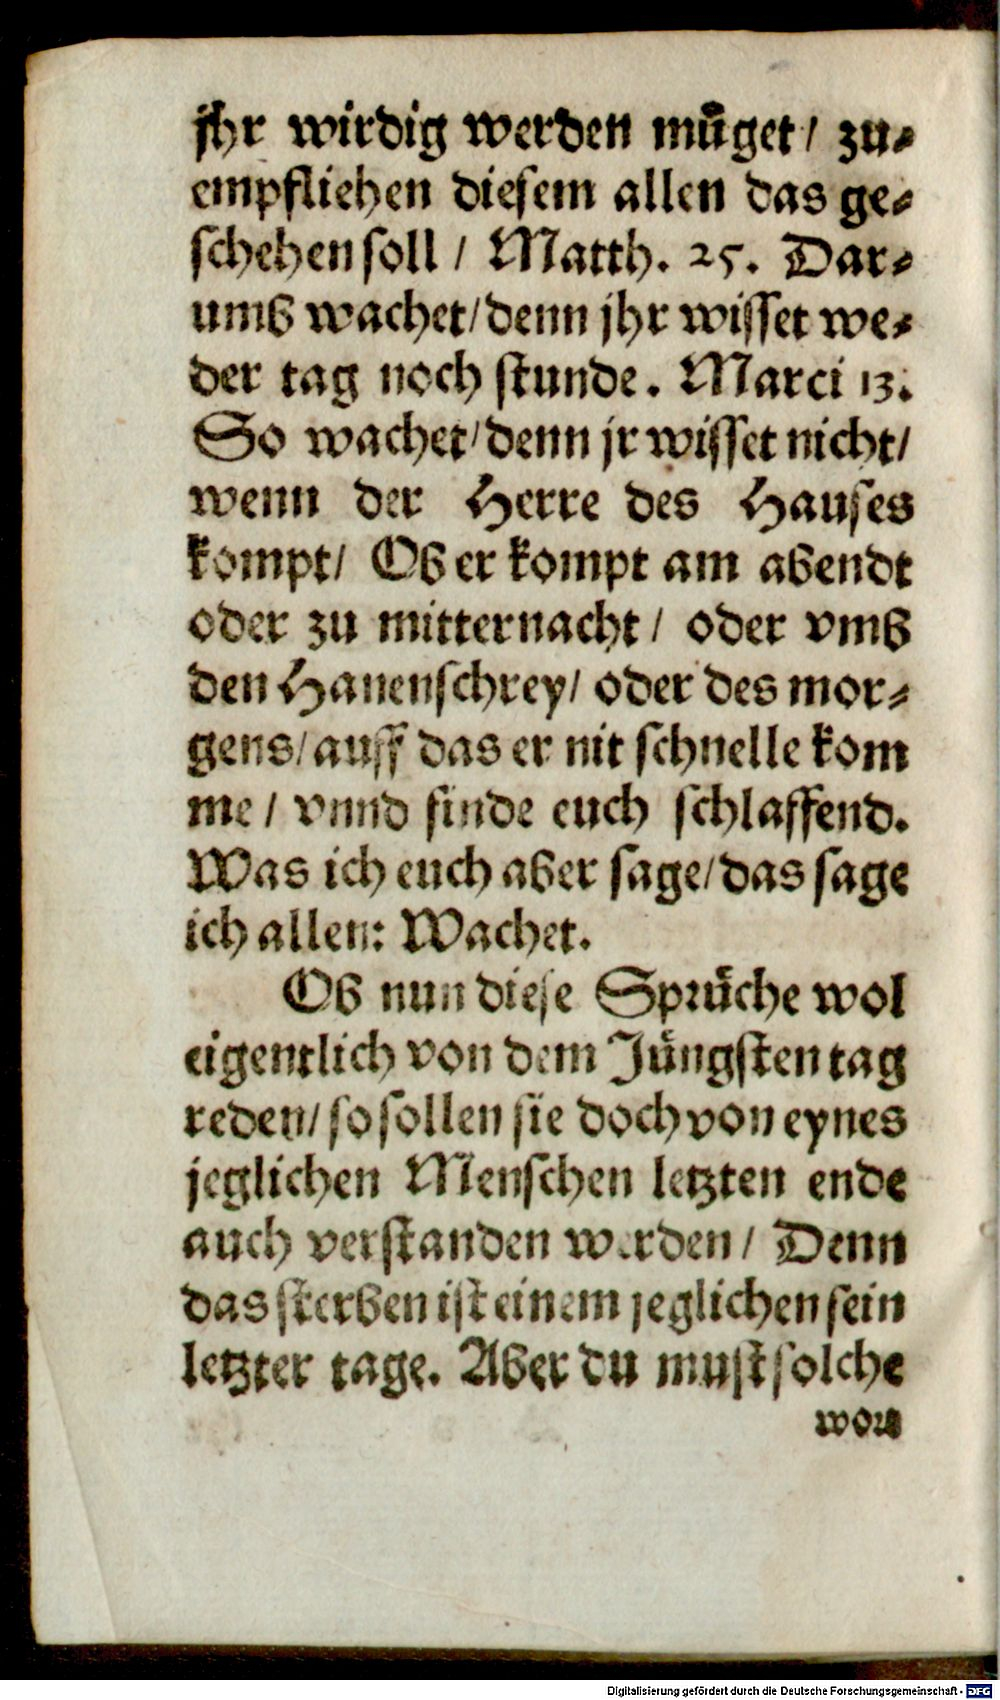 jhr wirdig werden muͤget / zu⸗
empfliehen diesem allen das ge⸗
schehen soll / Matth. 25. Dar⸗
umb wachet / denn jhr wisset we⸗
der tag noch stunde. Marci 13.
So wachet / denn jr wisset nicht /
wenn der Herre des Hauses
kompt / Ob er kompt am abendt
oder zu mitternacht / oder vmb
den Hanenschrey / oder des mor⸗
gens / auff das er nit schnelle kom
me / vnnd finde euch schlaffend.
Was ich euch aber sage / das sage
ich allen: Wachet.
Ob nun diese Spruͤche wol
eigentlich von dem Juͤngsten tag
reden / so sollen sie doch von eynes
jeglichen Menschen letzten ende
auch verstanden werden / Denn
das sterben ist einem jeglichen sein
letzter tage. Aber du must solche
wort
Digitalisierung gefördert durch die Deutsche Forschungsgemeinschaft - DFG